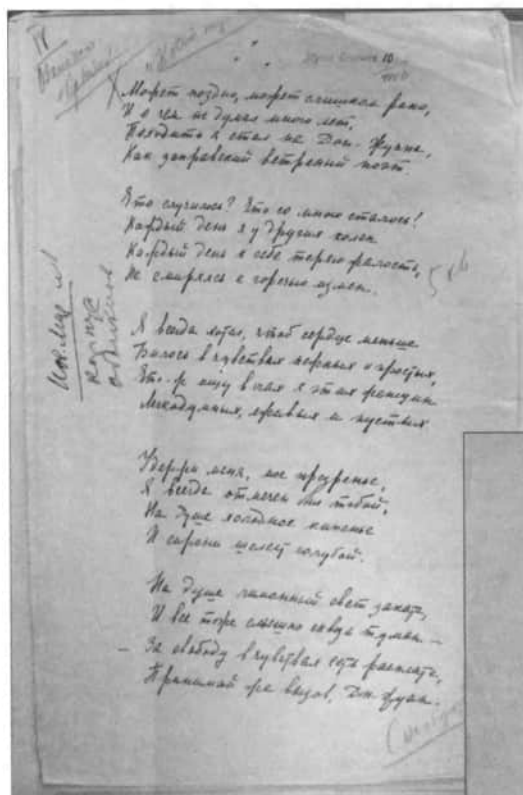 Может поздно, может слишком рано,
И о чем не думал много лет,
Походить я стал на Дон-Жуана,
Как заправский ветреный поэт.
Что случилось? Что со мною сталось?
Каждый день я у других колен
Каждый день к себе теряю жалость,
Не смиряясь с горечью измен.
Я всегда хотел, чтоб сердце меньше
Билось в чувствах нежных и простых,
Что-ж ищу в очах я этих женщин
Легкодумных, лживых и пустых
Удержи меня, мое презренье,
Я всегда отмечен был тобой,
На душе холодное кипенье
И сирени шелест голубой.
На душе лимонный свет заката,
И все тоже слышно сквозь туман —
— За свободу в чувствах есть расплата,
Принимай же вызов, Дон-Жуан.
корпус